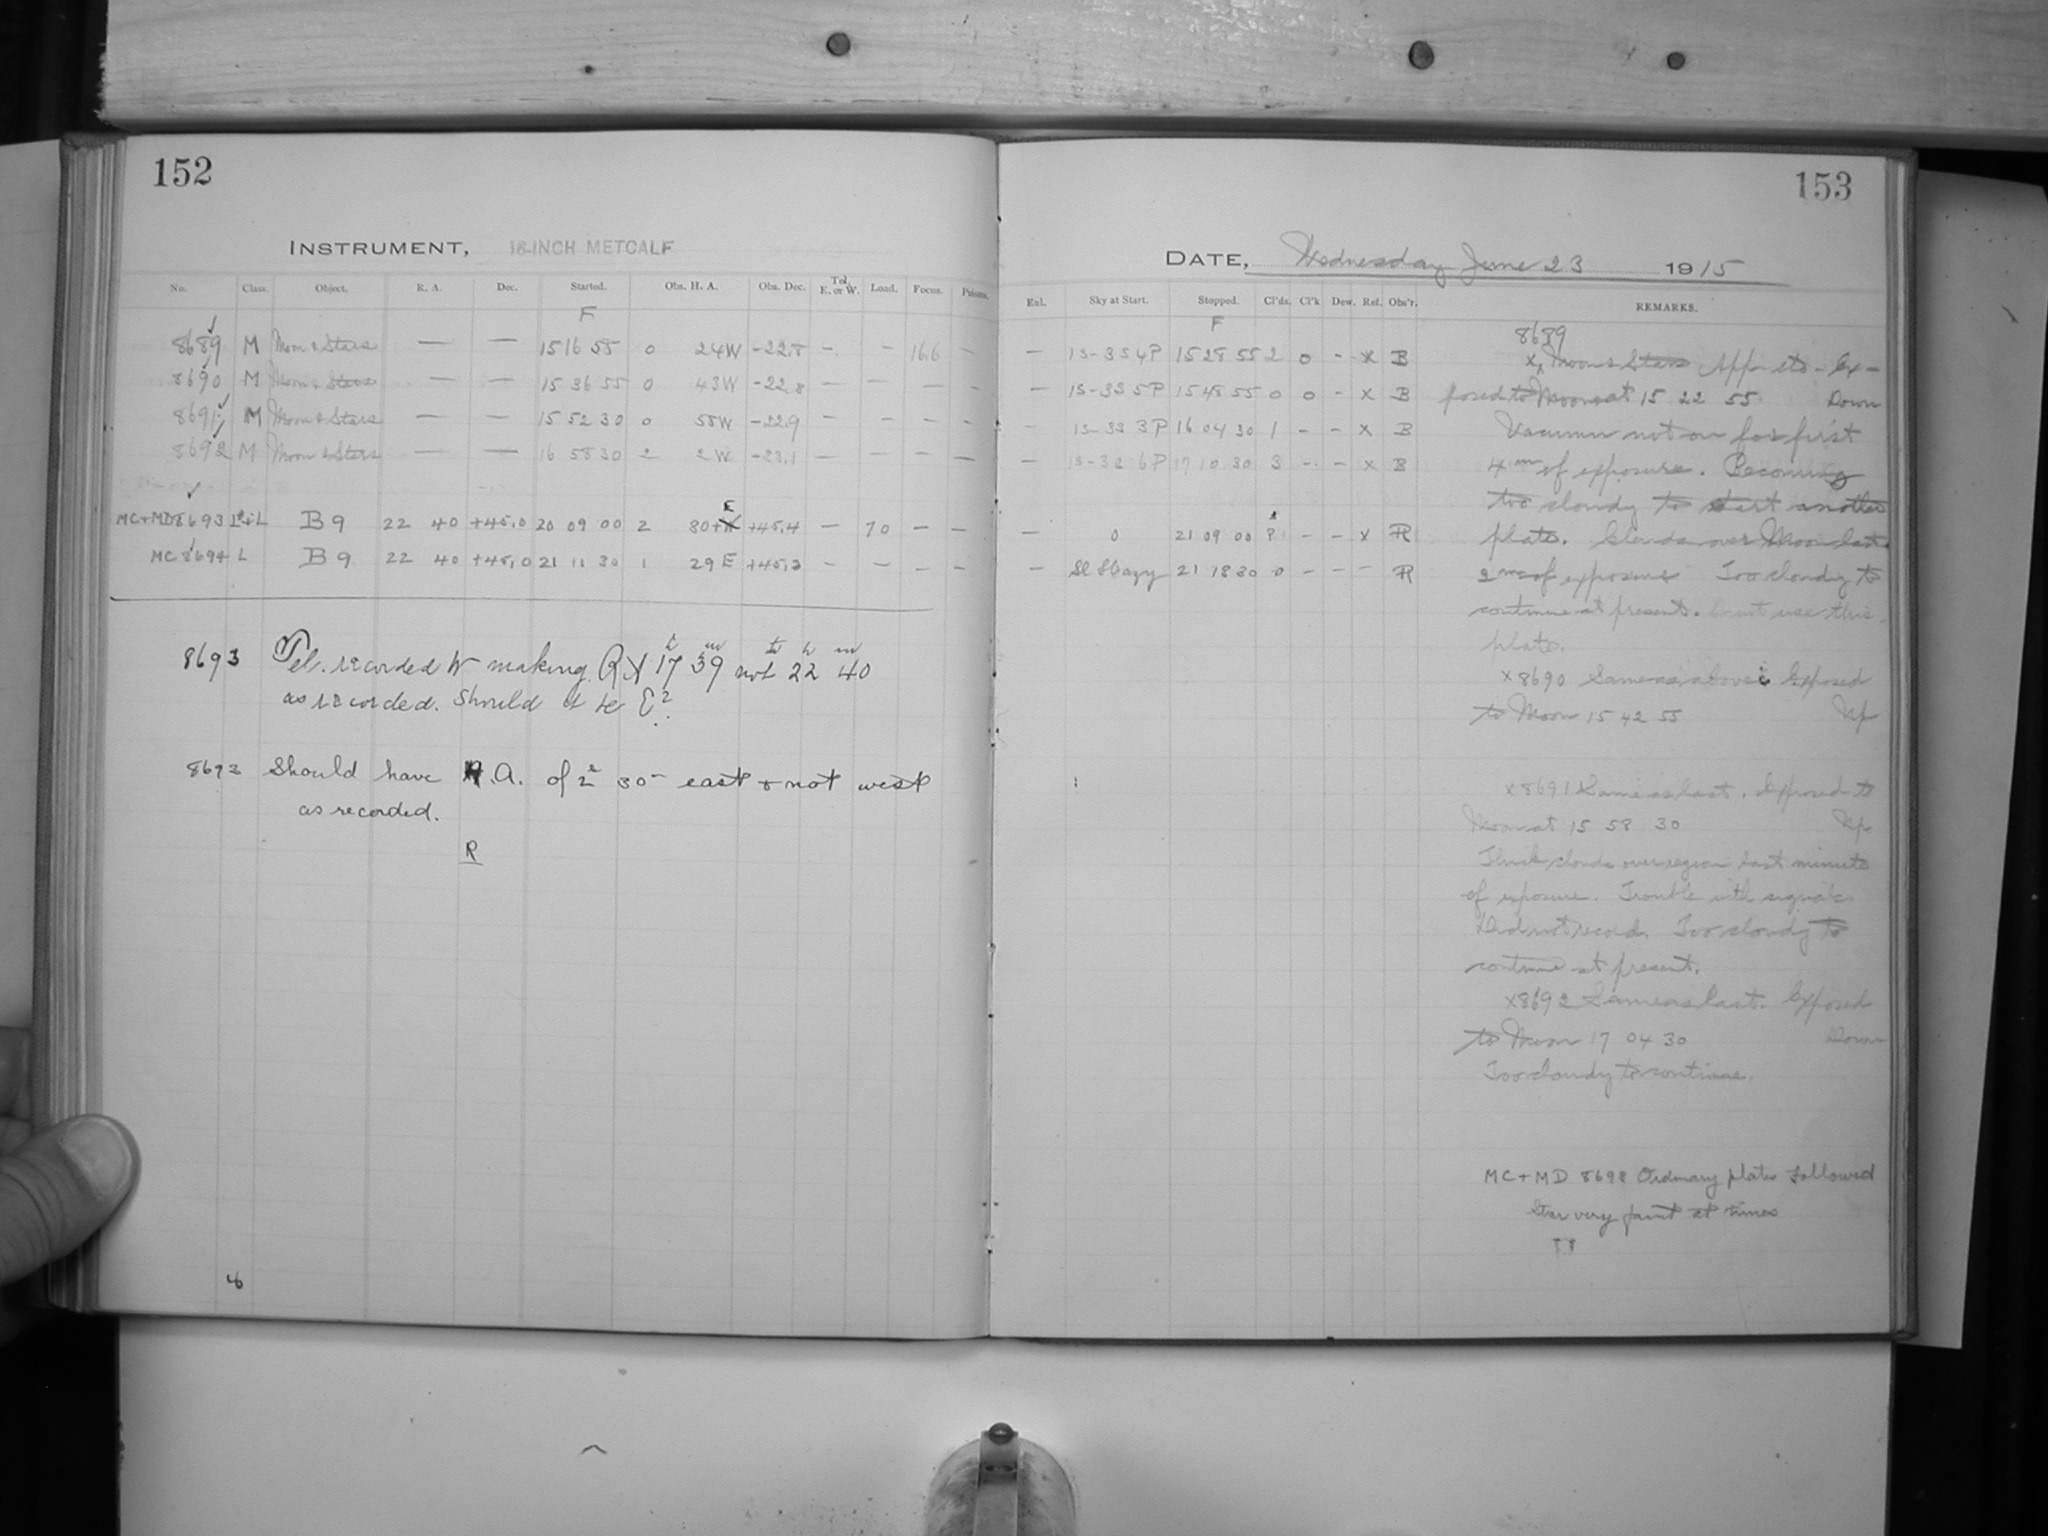 152
INSTRUMENT, 16-INCH METCALF
No. Class. Object. R. A. Dec. Started. Obs. H. A. Obs. Dec. Tel. E. or W. Load. Focus. Prisms.
F
8689 M Moon & Stars — — 15 16 55 0 24W -22.8 - - 16.6 -
8690 M Moon & Stars — — 15 36 55 0 43W -22.8 — — — —
8691 M Moon & Stars — — 15 52 30 0 58W -22.9 — — — —
8692 M Moon & Stars — — 16 58 30 2 2W -23.1 — — — —
MC+MD 8693 L+L B9 22 40 +45.0 20 09 00 2 30 E +45.4 — 70 — —
MC 8694 L B9 22 40 +45.0 21 11 30 1 29E +45.3 — — — —
8693 Tel. recorded W making RA 17h 39m not 22h 40m
as recorded. Should it be E?
8693 Should have H.A. of 2h 30m east & not west
as recorded.
R
153
DATE, Wednesday June 23 1915
Enl. Sky at Start. Stopped. Cl'ds. Cl'k Dew. Ref. Obs'r. REMARKS.
F
— 1s-3s4P 15 28 55 2 0 - x B
— 1s-3s5P 15 48 55 0 0 - x B
— 1s-3s3P 16 04 30 1 - - x B
— 1s-3s6P 17 10 30 3 - - x B
— 0 21 09 00 - - x R
— Sl Hazy 21 18 30 0 - - - R
8689
x Moon & Stars App etc - Ex-
posed to Moon at 15 22 55 Down
Vacuum not on for first
4m of exposure. Becoming
too cloudy to start another
plate. Clouds over Moon last
2m of exposure Too cloudy to
continue at present. Don't use this
plate.
x8690 Same as above Exposed
to Moon 15 42 55 Up
x8691 Same as last. Exposed to
Moon at 15 58 30 Up
Thick clouds over region last minute
of exposure. Trouble with signals
Did not record. Too cloudy to
continue at present.
x8692 Same as last. Exposed
to Moon 17 04 30 Down
Too cloudy to continue.
MC+MD 8693 Ordinary plates followed
Star very faint at times